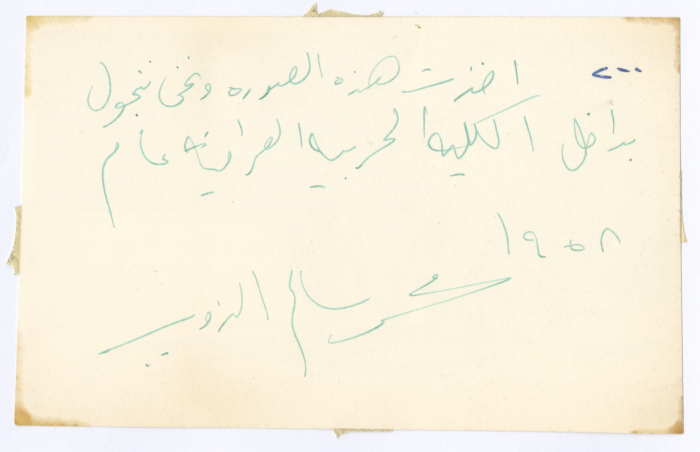 اخذت هذه الصوره ونحن نتجول
بداخل الكلية الحربيه العراقية عام
١٩٥٨
سالم الزويد